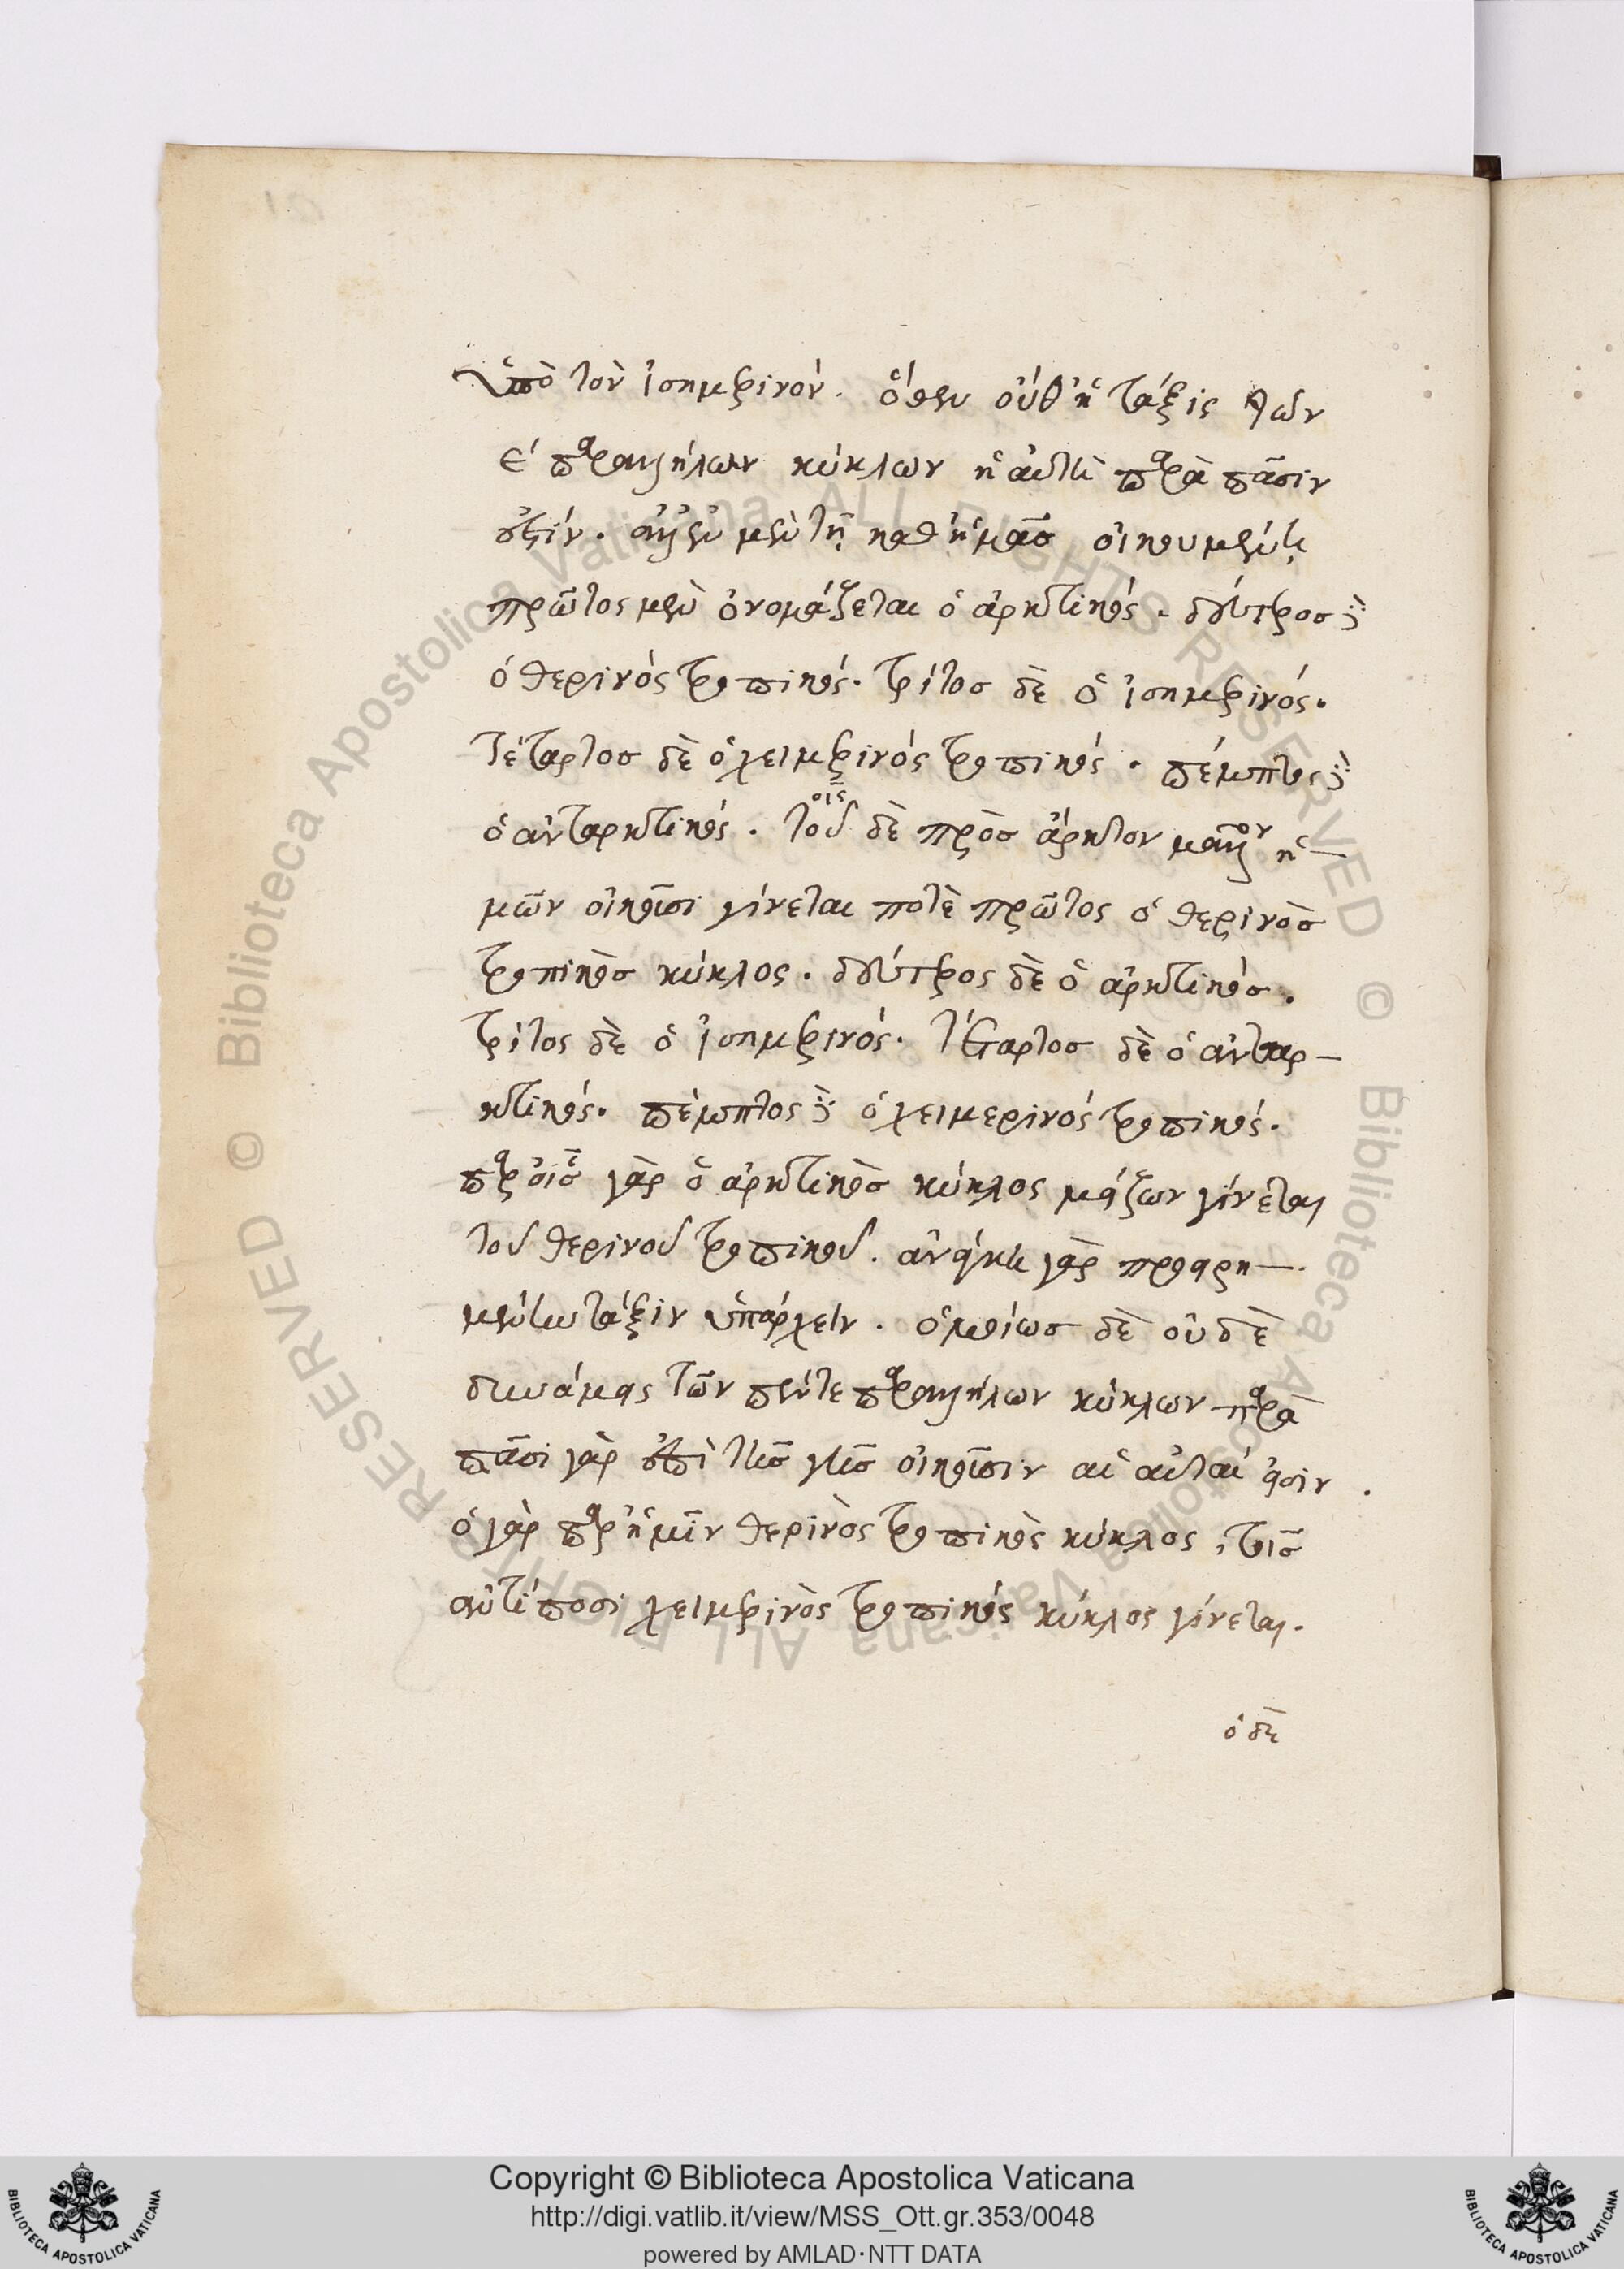 ὑπὸ τὸν ἰσημερινόν. ὅθεν οὐθ' ἡ τάξις τῶν
ε' παραλλήλων κύκλων ἡ αὐτὴ παρὰ πᾶσιν
ἐστίν. ἀλλ' ἐν μὲν τῇ καθ' ἡμᾶς οἰκουμένῃ
πρῶτος μὲν ὀνομάζεται ὁ ἀρκτικός. δεύτερος δὲ
ὁ θερινὸς τροπικός. τρίτος δὲ ὁ ἰσημερινός.
τέταρτος δὲ ὁ χειμερινός τροπικός. πέμπτος δὲ
ὁ ἀνταρκτικός. τοῖς δὲ πρὸς ἄρκτον μᾶλλον ἡ-
μῶν οἰκοῦσι γίνεται ποτὲ πρῶτος ὁ θερινὸς
τροπικὸς κύκλος. δεύτερος δὲ ὁ ἀρκτικός.
τρίτος δὲ ὁ ἰσημερινός. τέταρτος δὲ ὁ ἀνταρ-
κτικός. πέμπτος δὲ ὁ χειμερινός τροπικός.
παρ' οἷς γὰρ ὁ ἀρκτικὸς κύκλος μείζων γίνεται
τοῦ θερινοῦ τροπικοῦ. ἀνάγκη γὰρ προειρη-
μένην τάξιν ὑπάρχειν. ὁμοίως δὲ οὐδὲ
δυνάμεις τῶν πέντε παραλλήλων κύκλων παρὰ
πᾶσι γὰρ ἐπὶ τῆς γῆς οἰκοῦσιν αἱ αὐταί εἰσιν.
ὁ γὰρ παρ' ἡμῖν θερινὸς τροπικὸς κύκλος, τοῖς
ἀντίποσι χειμερινὸς τροπικός κύκλος γίνεται.
ὁ δὲ
Copyright © Biblioteca Apostolica Vaticana
http://digi.vatlib.it/view/MSS_Ott.gr.353/0048
powered by AMLAD·NTT DATA